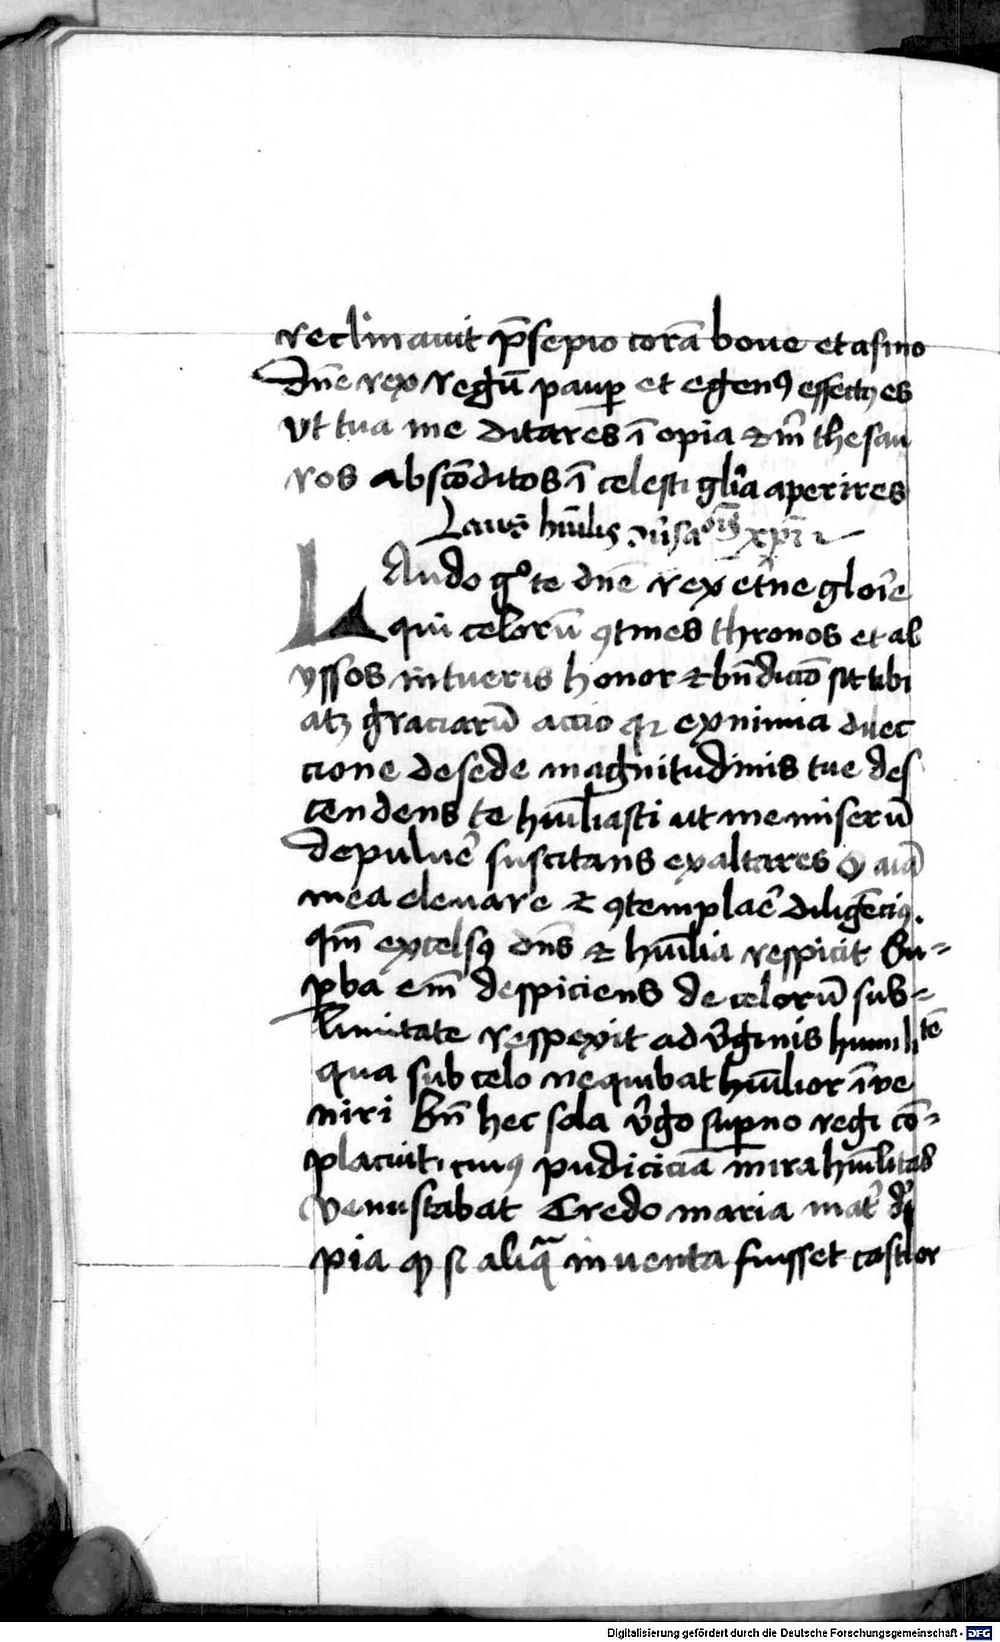 reclinauit p̄sepio corā boue et asino
Dn̄e rex regū paup̱ et egenꝰ effectꝰ es
vt tua me ditares ī opia ⁊ m̄ thesau
ros abscōditos ī celesti gl̄ia aperires
Laus hūilis xp̄i
LAudo gͦ te dn̄e rex et̄ne glorie
qui celorū ꝯtines thronos et ab
yssos intueris honor ⁊ bn̄diccō sit tibi
atꝫ graciarū accio qꝛ ex nimia dilec
cione de sede magnitudinis tue des
cendens te hūiliasti ut me miserū
de puluē suscitans exaltares O aīa
mea eleuare ⁊ ꝯtemplarē diligēciꝰ.
qm̄ excelsꝰ dn̄s ⁊ hūilia respicit Su-
p̱ba em̄ despiciens de celorū sub-
limitate respexit ad v̄ginis humilitatē
qua sub celo nequibat hūilior īue
niri Bn̄ hec sola v̄go sup̱no regi cō-
placuit, cuiꝰ pudiciciā mira hūilitas
venustabat Credo maria mat̄ dei
pia qꝫ si aliq̄ inuenta fuisset castior